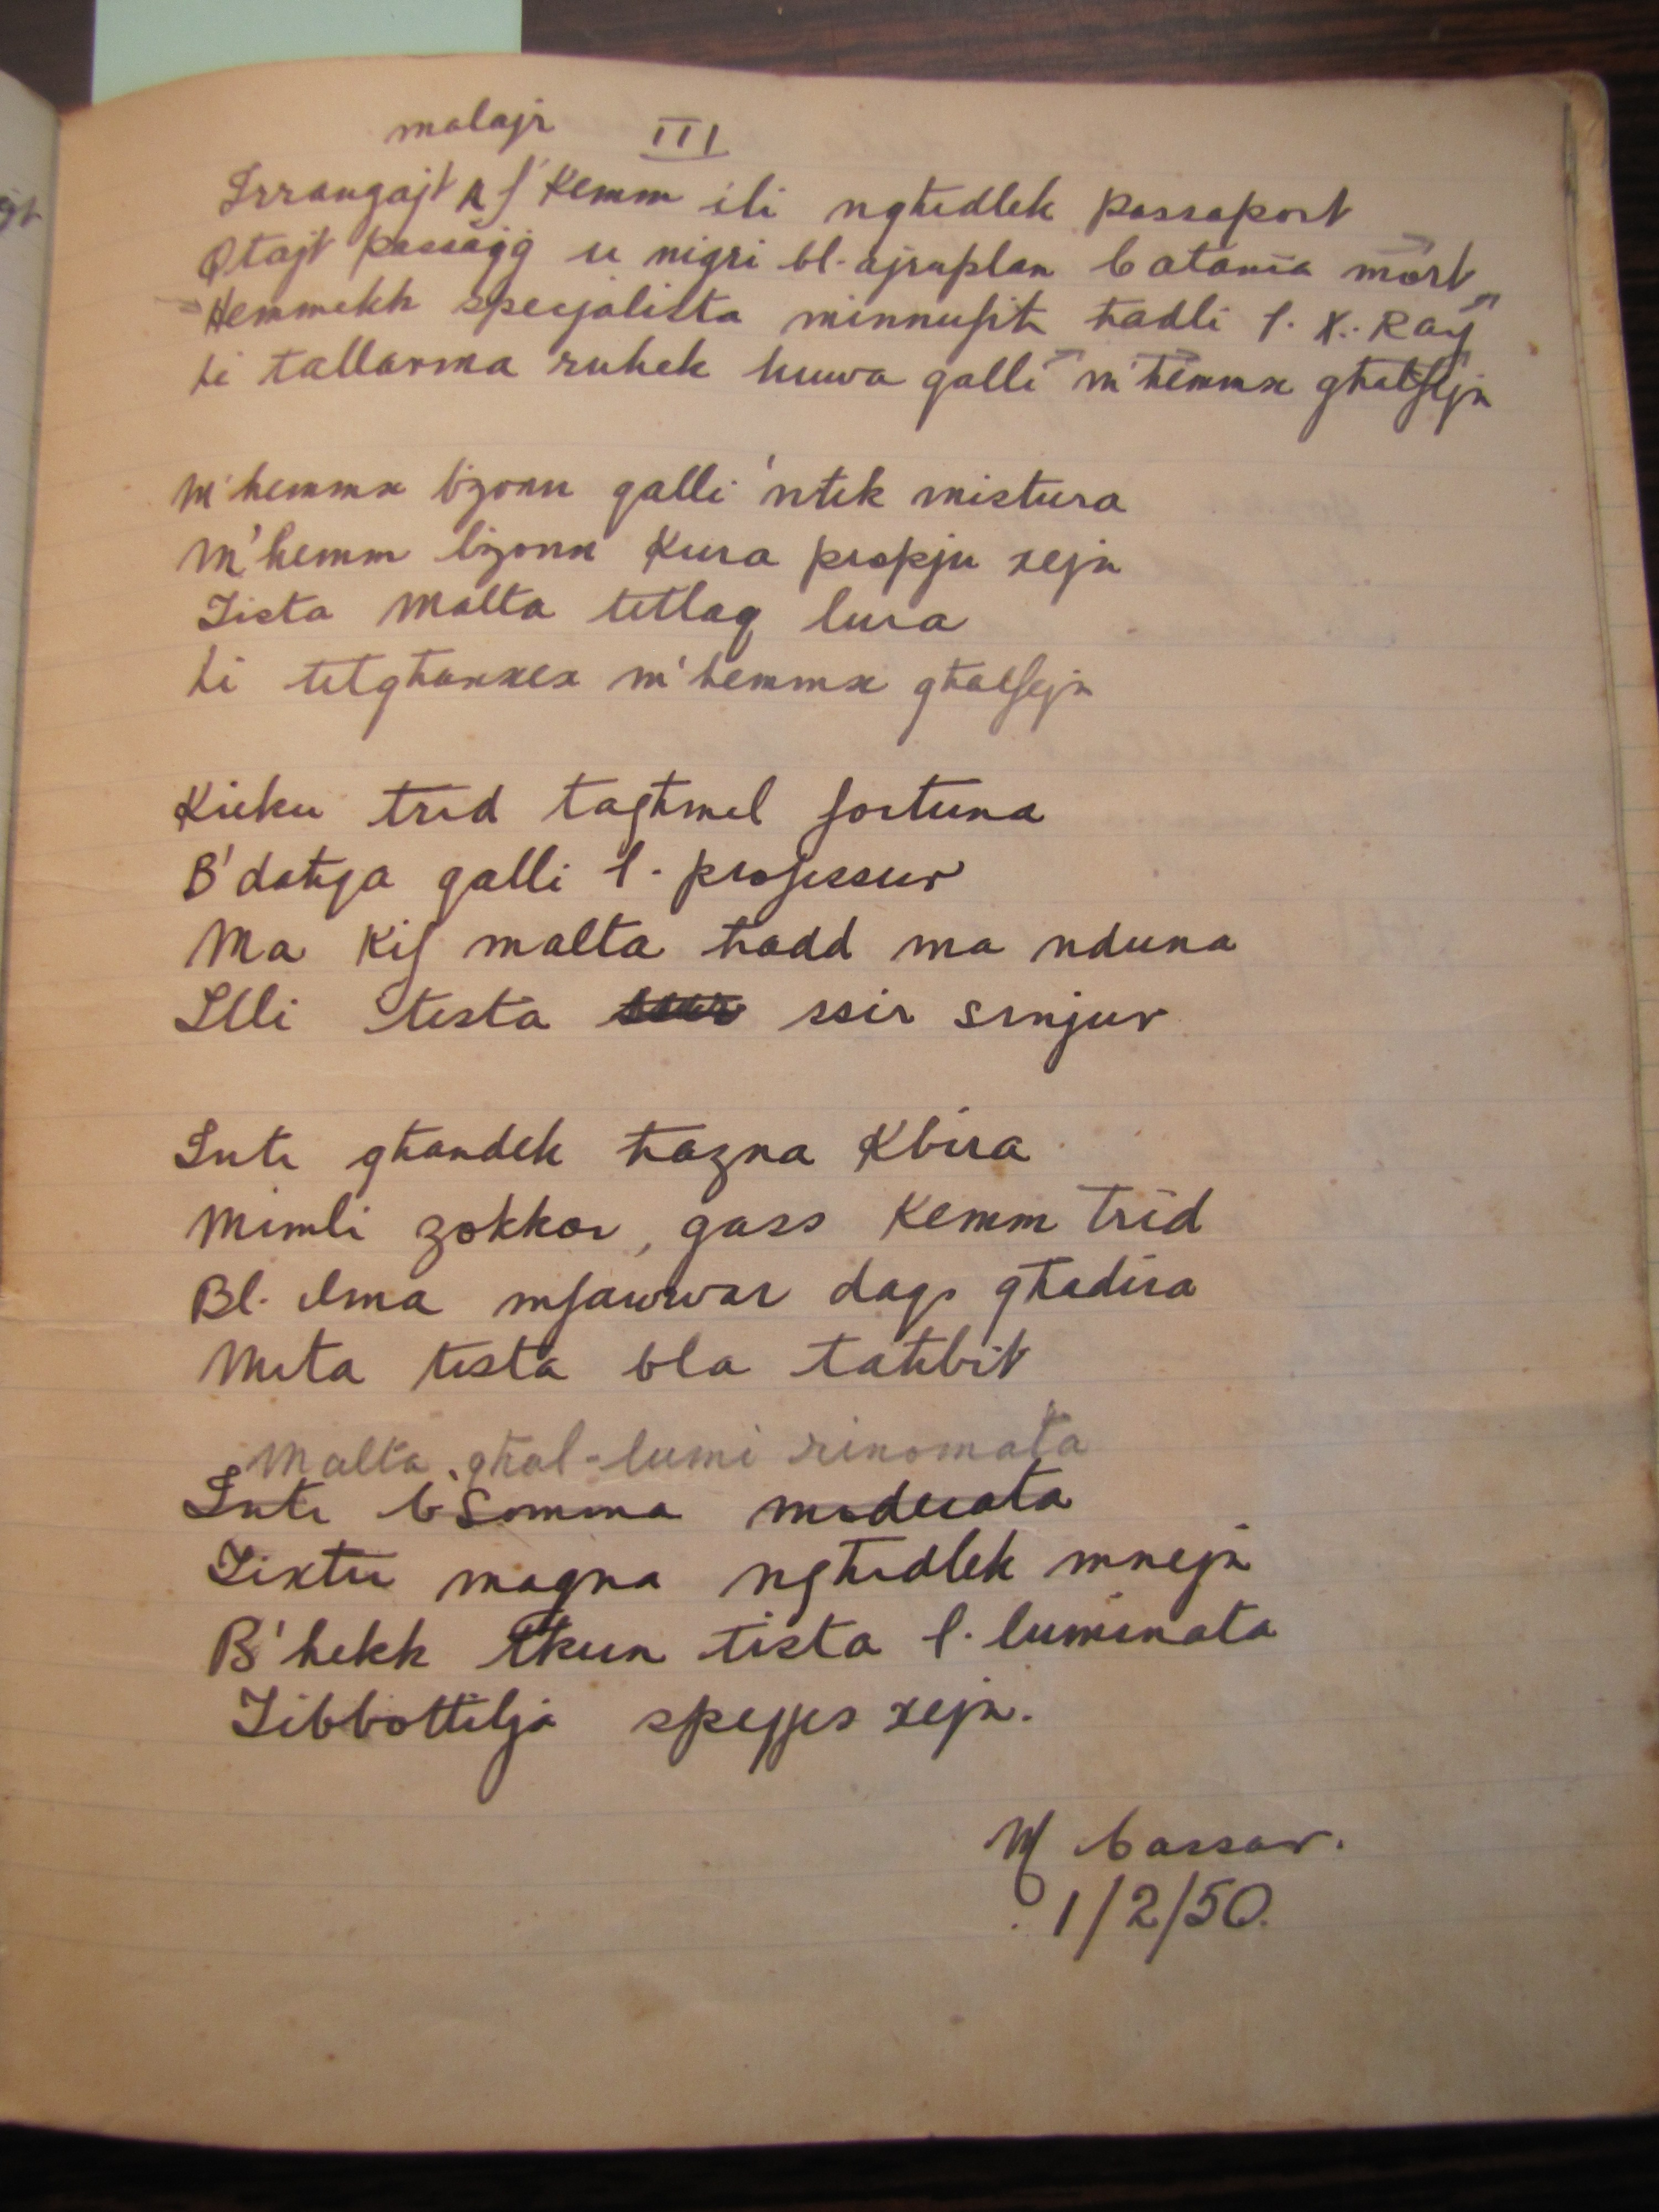 malajr
III
Irrangajt f'Kemm ili nghidlek passaport
Qtajt passagg u nigri bl-ajruplan Catania mort
Hemmekk specjalista minnufih hadli l. X. Ray
Li tallarma ruhek huwa qalli m'hemmx ghalfejn
M'hemmx bzonn qalli 'ntik mistura
M'hemm bzonn Kura propju xejn
Tista Malta titlaq lura
Li titghaxxex m'hemmx ghalfejn
Kieku trid taghmel fortuna
B'dahqa qalli l. professur
Ma Kif malta hadd ma nduna
Illi tista ssir sinjur
Inti ghandek hazna Kbira
Mimli zokkor, gass Kemm trid
Bl. ilma mfawwar daqs ghadira
Mela tista bla tahbit
Malta ghal-lumi rinomata
Inti b'somma moderata
Tixtri magna nghidlek mnejn
B'hekk tkun tista l. luminata
Tibbottilja spejjes xejn.
M Cassar.
1/2/50.